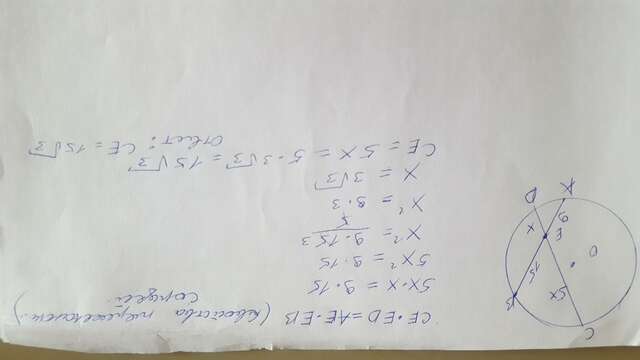 CE·ED=AE·EB (свойства пересекающ.
хорд)
5x·x = 9·15
5x² = 9·15
x² = 9·15 3 / 5
x² = 9·3
x = 3√3
CE = 5x = 5·3√3 = 15√3
Ответ: CE = 15√3
A
D
9
x
E
O
15
5x
B
C